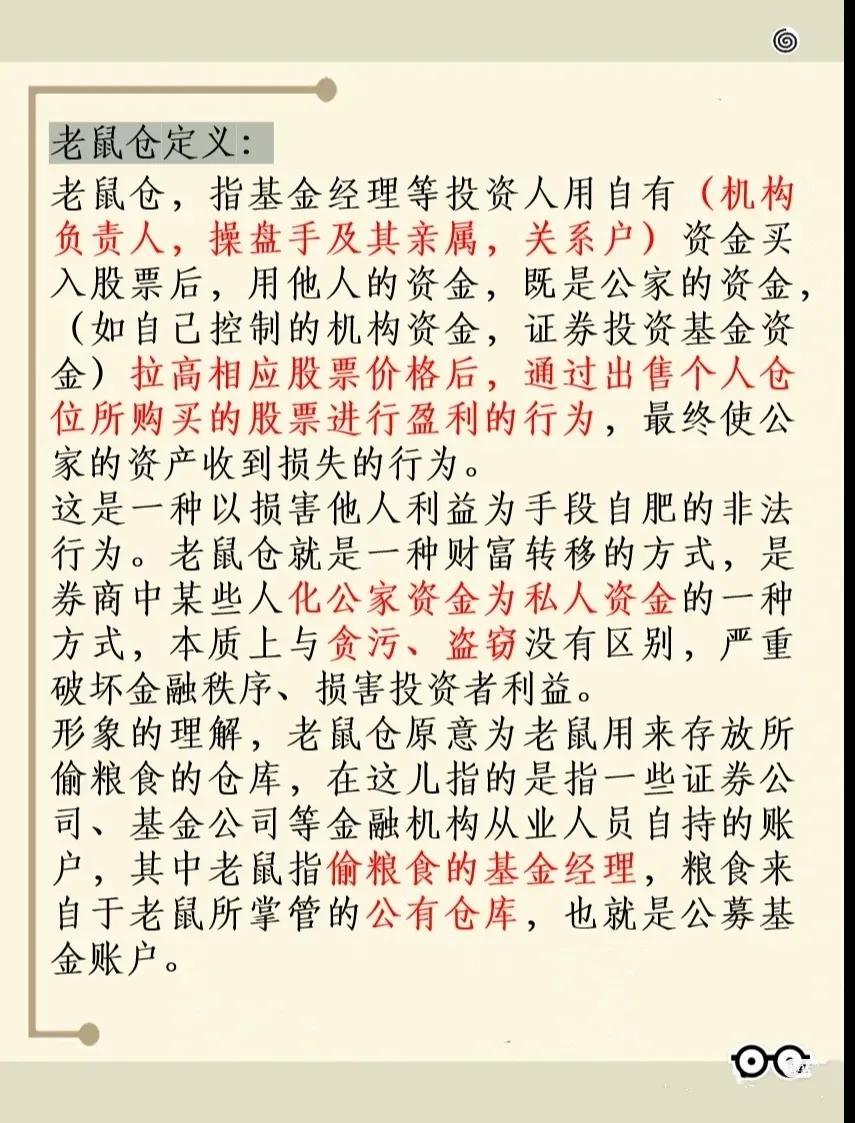 老鼠仓定义：
老鼠仓，指基金经理等投资人用自有（机构
负责人，操盘手及其亲属，关系户）资金买
入股票后，用他人的资金，既是公家的资金，
（如自己控制的机构资金，证券投资基金资
金）拉高相应股票价格后，通过出售个人仓
位所购买的股票进行盈利的行为，最终使公
家的资产收到损失的行为。
这是一种以损害他人利益为手段自肥的非法
行为。老鼠仓就是一种财富转移的方式，是
券商中某些人化公家资金为私人资金的一种
方式，本质上与贪污、盗窃没有区别，严重
破坏金融秩序、损害投资者利益。
形象的理解，老鼠仓原意为老鼠用来存放所
偷粮食的仓库，在这儿指的是指一些证券公
司、基金公司等金融机构从业人员自持的账
户，其中老鼠指偷粮食的基金经理，粮食来
自于老鼠所掌管的公有仓库，也就是公募基
金账户。